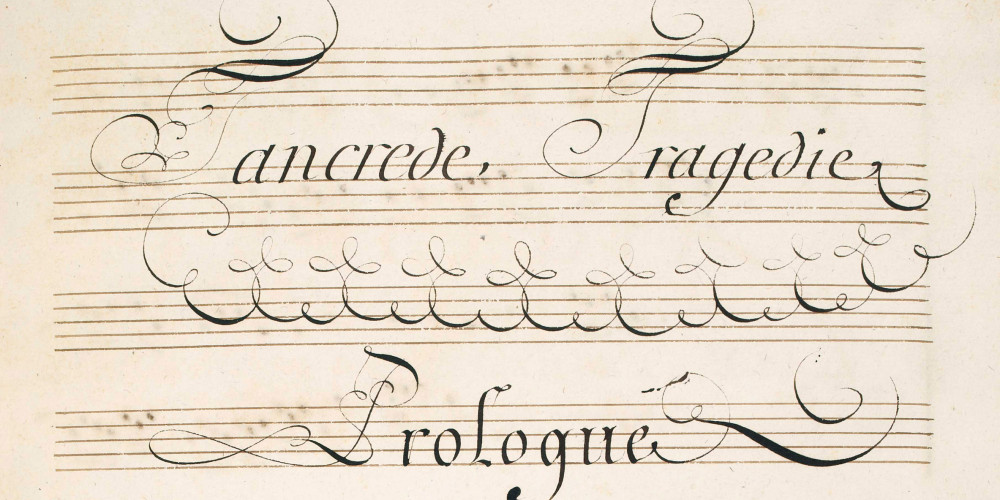 Tancrede, Tragedie
Prologue